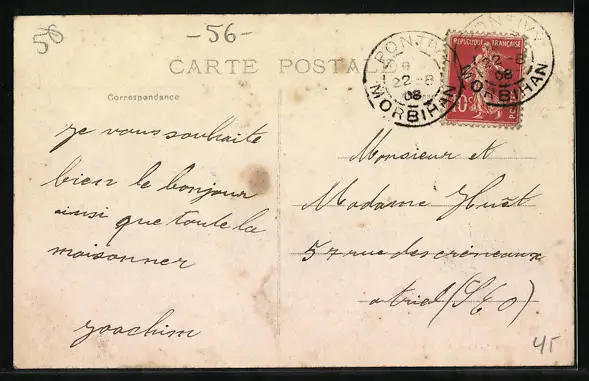 56
-56-
CARTE POSTALE
Correspondance
PONTIVY
9
22-8
08
MORBIHAN
REPUBLIQUE FRANÇAISE
10c
POSTES
PONTIVY
22-8
08
MORBIHAN
je vous souhaite
bien le bonjour
ainsi que toute la
maisonner
Joachim
Monsieur et
Madame Huet
57 rue des créneaux
a triel (S&O)
45